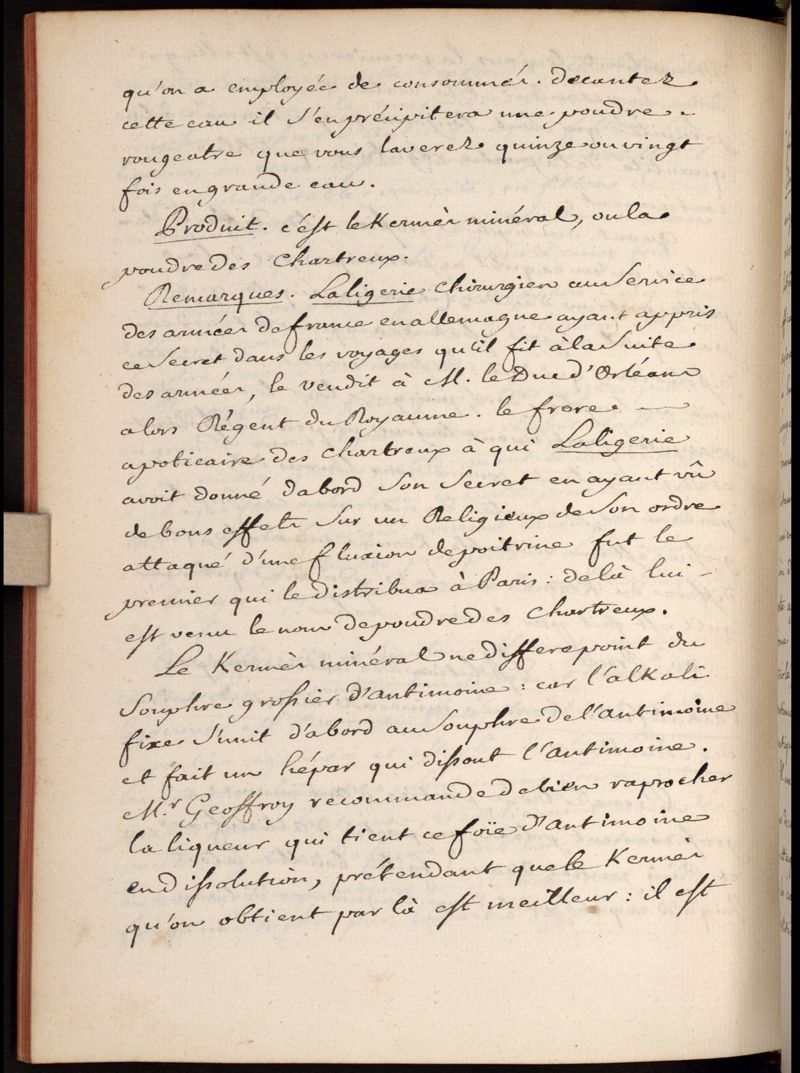 qu'on a employée de consommée. decantez
cette eau il s'en précipitera une poudre
rougeatre que vous laverez quinze ou vingt
fois en grande eau.
Produit. c'est le Kermès minéral, ou la
poudre des Chartreux.
Remarques. Laligerie Chirurgien au Service
des armées de france en allemagne ayant appris
ce Secret dans les voyages qu'il fit à la Suite
des armées, le vendit à M. le Duc d'Orléans
alors Régent du Royaume. le frere
apoticaire des Chartreux à qui Laligerie
avoit donné dabord Son Secret en ayant vû
de bons effets Sur un Religieux de Son ordre
attaqué d'une fluxion de poitrine fut le
premier qui le distribua à Paris : de là lui
est venu le nom de poudre des Chartreux.
Le Kermès minéral ne differe point du
Souphre grossier d'antimoine : car l'alkali
fixe S'unit d'abord au Souphre de l'antimoine
et fait un hépar qui dissout l'antimoine.
Mr. Geoffroy recommande de bien raprocher
la liqueur qui tient ce foïe d'antimoine
en dissolution, prétendant que le Kermès
qu'on obtient par là est meilleur : il est